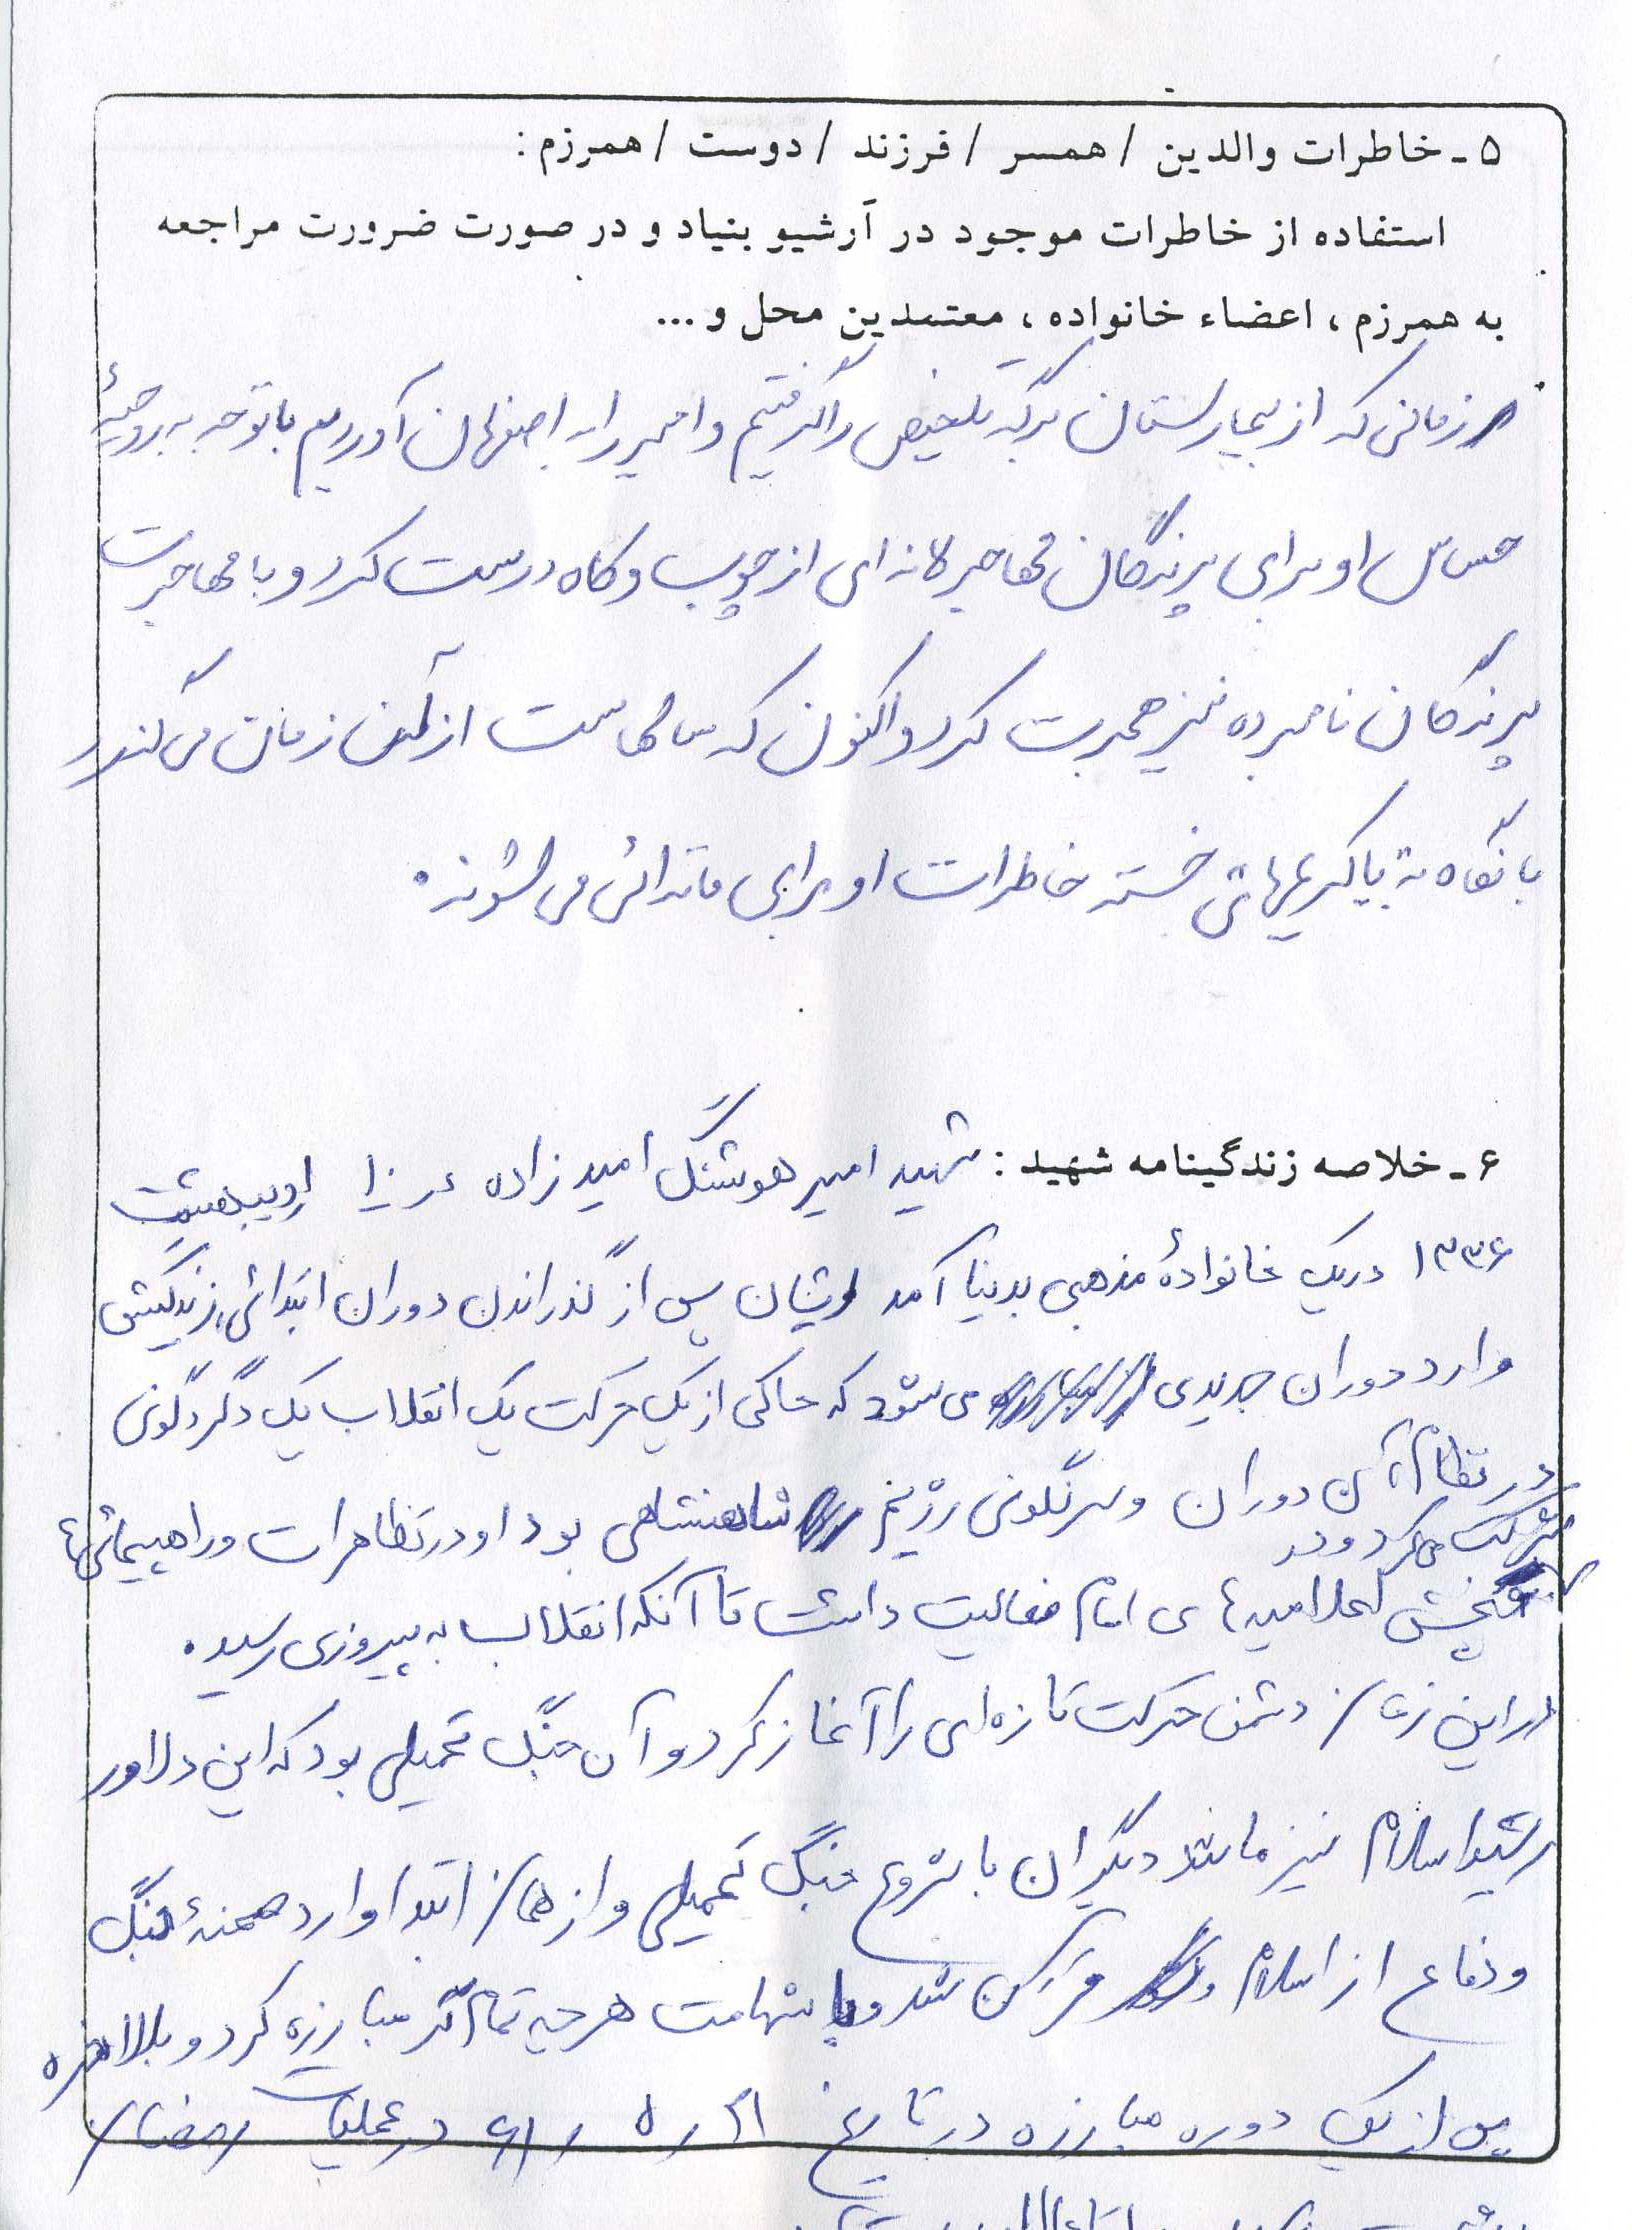 ۵ - خاطرات والدین / همسر / فرزند / دوست / همرزم :
استفاده از خاطرات موجود در آرشیو بنیاد و در صورت ضرورت مراجعه
به همرزم ، اعضاء خانواده ، معتمدین محل و ...
زمانی که از بیمارستان برگه تلخیص را گرفتیم و امیر را به اصفهان آوردیم با توجه به روحیهٔ
حساس او برای پرندگان مهاجر لانه ای از چوب و کاه درست کرد و با مهاجرت
پرندگان نامبرده نیز هجرت کرد و اکنون که سالهاست از آن زمان می گذرد
با نگاه به خسته خاطرات او برای ما تداعی می شوند .
۶ - خلاصه زندگینامه شهید : شهید امیر هوشنگ امیدزاده در اردیبهشت
۱۳۳۶ در یک خانوادهٔ مذهبی بدنیا آمد ایشان پس از گذراندن دوران ابتدائی زندگیش
وارد دوران جدیدی می شود که حاکی از یک حرکت یک انقلاب یک دگرگونی
در نظام آن دوران و سرنگونی رژیم شاهنشاهی بود او در تظاهرات و راهپیمائیها
شرکت می کرد و در
پخش اعلامیه های امام فعالیت داشت تا آنکه انقلاب به پیروزی رسید .
در این زمان دشمن حرکت تازه ای را آغاز کرد و آن جنگ تحمیلی بود که این دلاور
رشید اسلام نیز مانند دیگران با شروع جنگ تحمیلی و از همان ابتدا وارد صحنهٔ جنگ
و دفاع از اسلام و قرآن شد و با شهامت هر چه تمام تر مبارزه کرد و بالاخره
پس از یک دوره مبارزه در تاریخ ۶۱ در عملیات رمضان